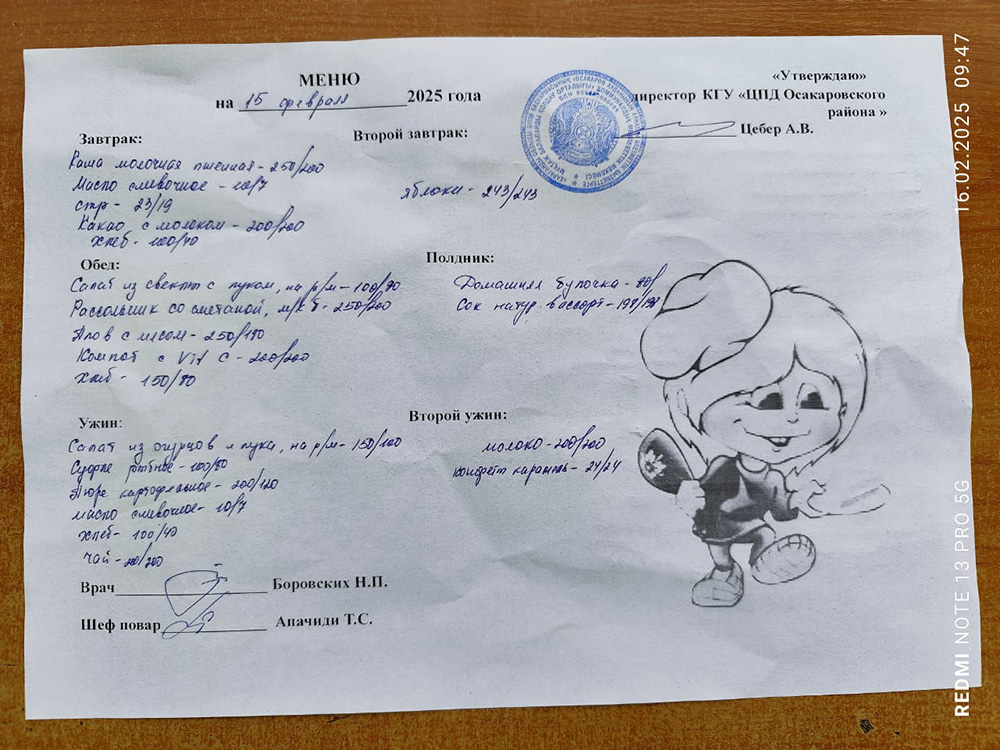 МЕНЮ
на 15 февраля 2025 года
«Утверждаю»
директор КГУ «ЦПД Осакаровского
района »
Цебер А.В.
Завтрак:
Каша молочная пшенная - 250/200
Масло сливочное - 10/7
сыр - 23/19
Какао с молоком - 200/200
хлеб - 100/70
Второй завтрак:
яблоки - 243/243
Обед:
Салат из свеклы с луком, на р/м - 100/90
Рассольник со сметаной, м/к б - 250/200
Плов с мясом - 250/180
Компот с Vit C - 200/200
хлеб - 150/80
Полдник:
Домашняя булочка - 80/
Сок натур. в ассорт - 198/198
Ужин:
Салат из огурцов и лука, на р/м - 150/100
Суфле рыбное - 100/80
Пюре картофельное - 200/120
масло сливочное - 10/7
хлеб - 100/40
чай - 200/200
Второй ужин:
молоко - 200/200
конфеты карамель - 24/24
Врач Боровских Н.П.
Шеф повар Апачиди Т.С.
16.02.2025 09:47
REDMI NOTE 13 PRO 5G